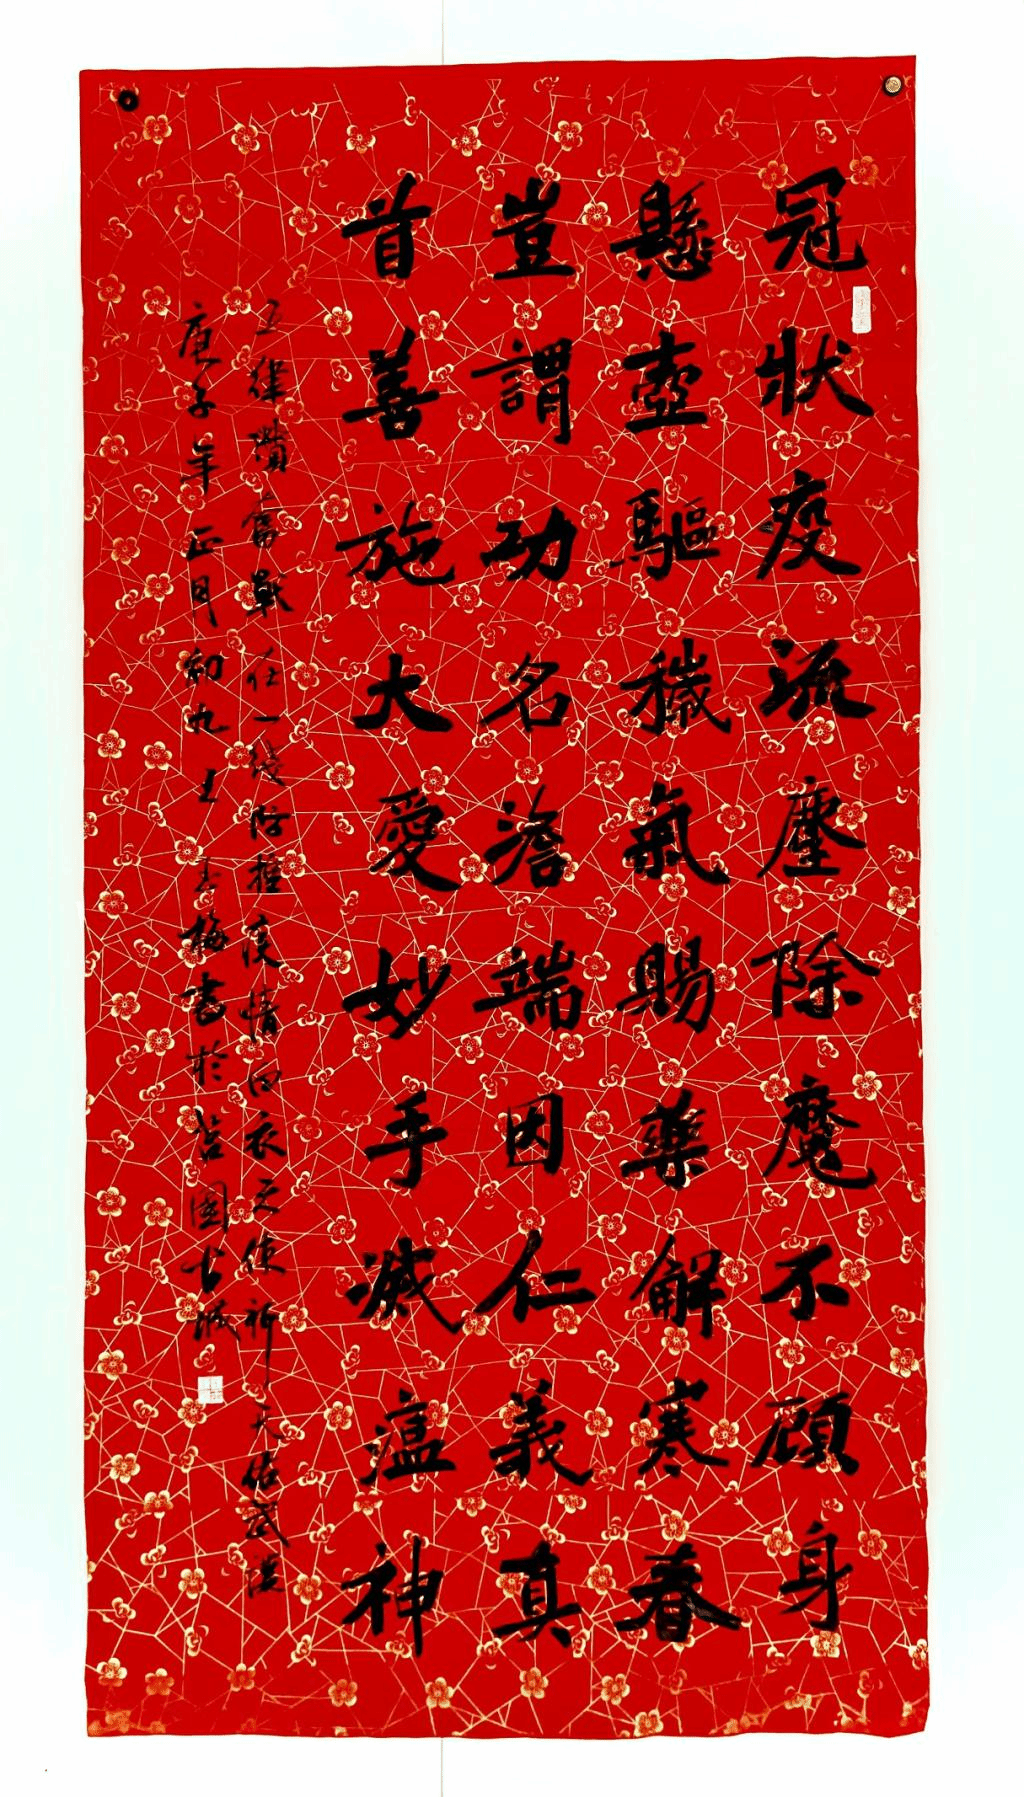 冠狀疫流塵除魔不顧身
懸壺驅穢氣賜藥解寒春
豈謂功名澹端因仁義真
首善施大愛妙手滅瘟神
五律讚奮戰在一线防控疫情白衣天使祈天佑武漢
庚子年正月初九王玉梅書於莒國古城